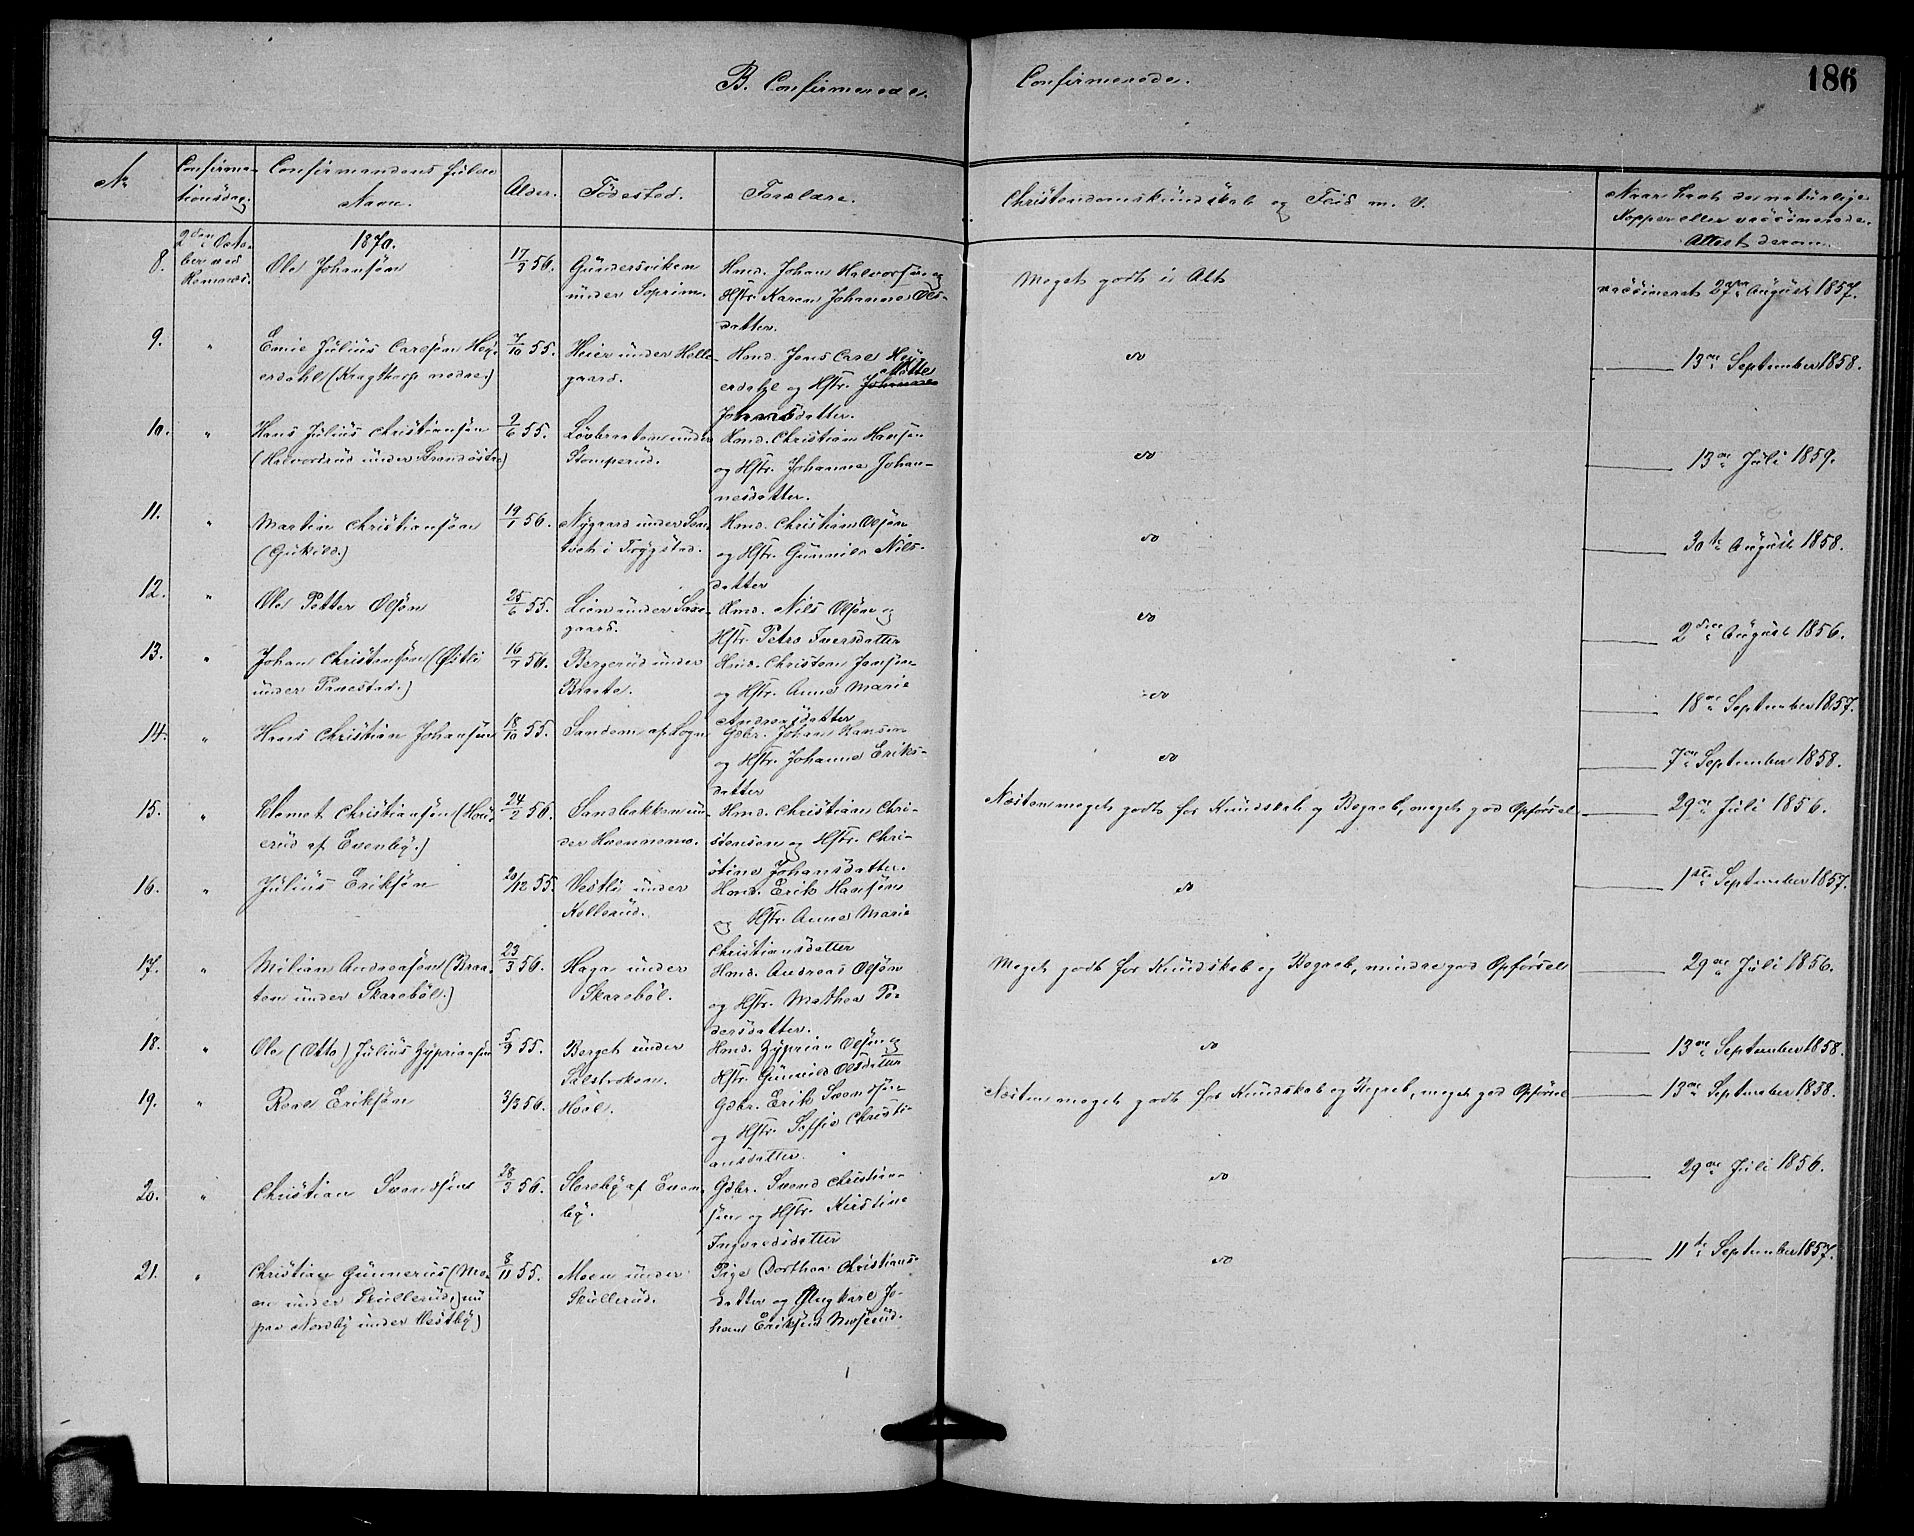 B. Confirmerede.
Confirmerede.
186
No
Confirma-
tionsdag.
Confirmandens fulde
Navn.
Alder.
Födested.
Forældre.
Christendomskundskab og Flid m. V.
Naar havt de naturlige
Kopper eller vaccinerede.
Attest derom.
1870.
2den Octo-
ber ved
Hemnæs.
8.
Ole Johansön
17/3 56.
Gundersviken
under Soprim.
Hmd. Johan Halvorsön og
Hstr. Karen Johanne Ols-
datter.
Meget godt i Alt
vaccineret 27de August 1857.
9.
"
Emil Julius Carlsön Hey-
erdahl (Kragtorp nedre.)
7/10 55.
Heier under Helle-
gaard.
Hmd. Jens Carl Hey-
erdahl og Hstr. Johanne
Mathe
Johansdatter.
do
13de September 1858.
10.
"
Hans Julius Christiansön
(Halvorsrud under Strandöstre)
9/6 55.
Lövbraaten under
Stomperud.
Hmd. Christian Hansön
og Hstr. Johanne Johan-
nesdatter.
do
13de Juli 1859.
11.
"
Martin Christiansön
(Gukild.)
19/1 56.
Nygaard under
i Trygstad.
Hmd. Christian Olsön
og Hstr. Gunnild Nils-
datter
do
30te August 1858.
12.
"
Ole Petter Olsön
25/6 55.
Lien under
gaard.
Hmd. Nils Olsön og
Hstr. Petra Iversdatter
do
2den August 1856.
13.
"
Johan Christensön (Östli
under Tanestad.)
16/7 56.
Bergerud under
Braate.
Hmd. Christen Jensön
og Hstr. Anne Marie
Andreasdatter
do
18de September 1857.
14.
"
Hans Christian Johansön
18/10 55.
Sandem af Sogn
Gdbr. Johan Hansen
og Hstr. Johanne Eriks-
datter
do
7de September 1858.
15.
"
Klemet Christiansön (
erud af Evenby.)
24/2 56.
Sandbakken un-
der
Hmd. Christian Chri-
stensen og Hstr. Chri-
stine Johansdatter.
Næsten meget godt for Kundskab og Begreb, meget god Opförsel
29de Juli 1856.
16.
"
Julius Eriksön
20/12 55.
Vestli under
Kollerud.
Hmd. Erik Hansön
og Hstr. Anne Marie
Christiansdatter
do
1ste September 1857.
17.
"
Milian Andreasön (Braa-
ten under Skareböl.)
23/3 56.
Haga under
Skareböl.
Hmd. Andreas Olsön
og Hstr. Mathea Pe-
dersdatter.
Meget godt for Kundskab og Begreb, mindre god Opförsel
29de Juli 1856.
18.
"
Ole (Otto) Julius Zypriansön
5/9 55.
Berget under
Hmd. Zyprian Olsön og
Hstr. Gunild Olsdatter
do
13de September 1858.
19.
"
Roal Eriksön
3/3 56.
Höel.
Gdbr. Erik Svendsön
og Hstr. Soffie Christi-
ansdatter.
Næsten meget godt for Kundskab og Begreb, meget god Opförsel
13de September 1858.
20.
"
Christian Svendsön
28/3 56.
Slereby af Even-
by.
Gdbr. Svend Christian-
sön og Hstr. Kirstine
Ingvaldsdatter
do
29de Juli 1856.
21.
"
Christian Gunnerius (Mo-
en under Skullerud,) nu
paa Nordby under Vestby)
8/11 55.
Moen under
Skullerud.
Pige Dorthea Christians-
datter og Ungkarl Jo-
han Eriksen Moserud.
do
11te September 1857.